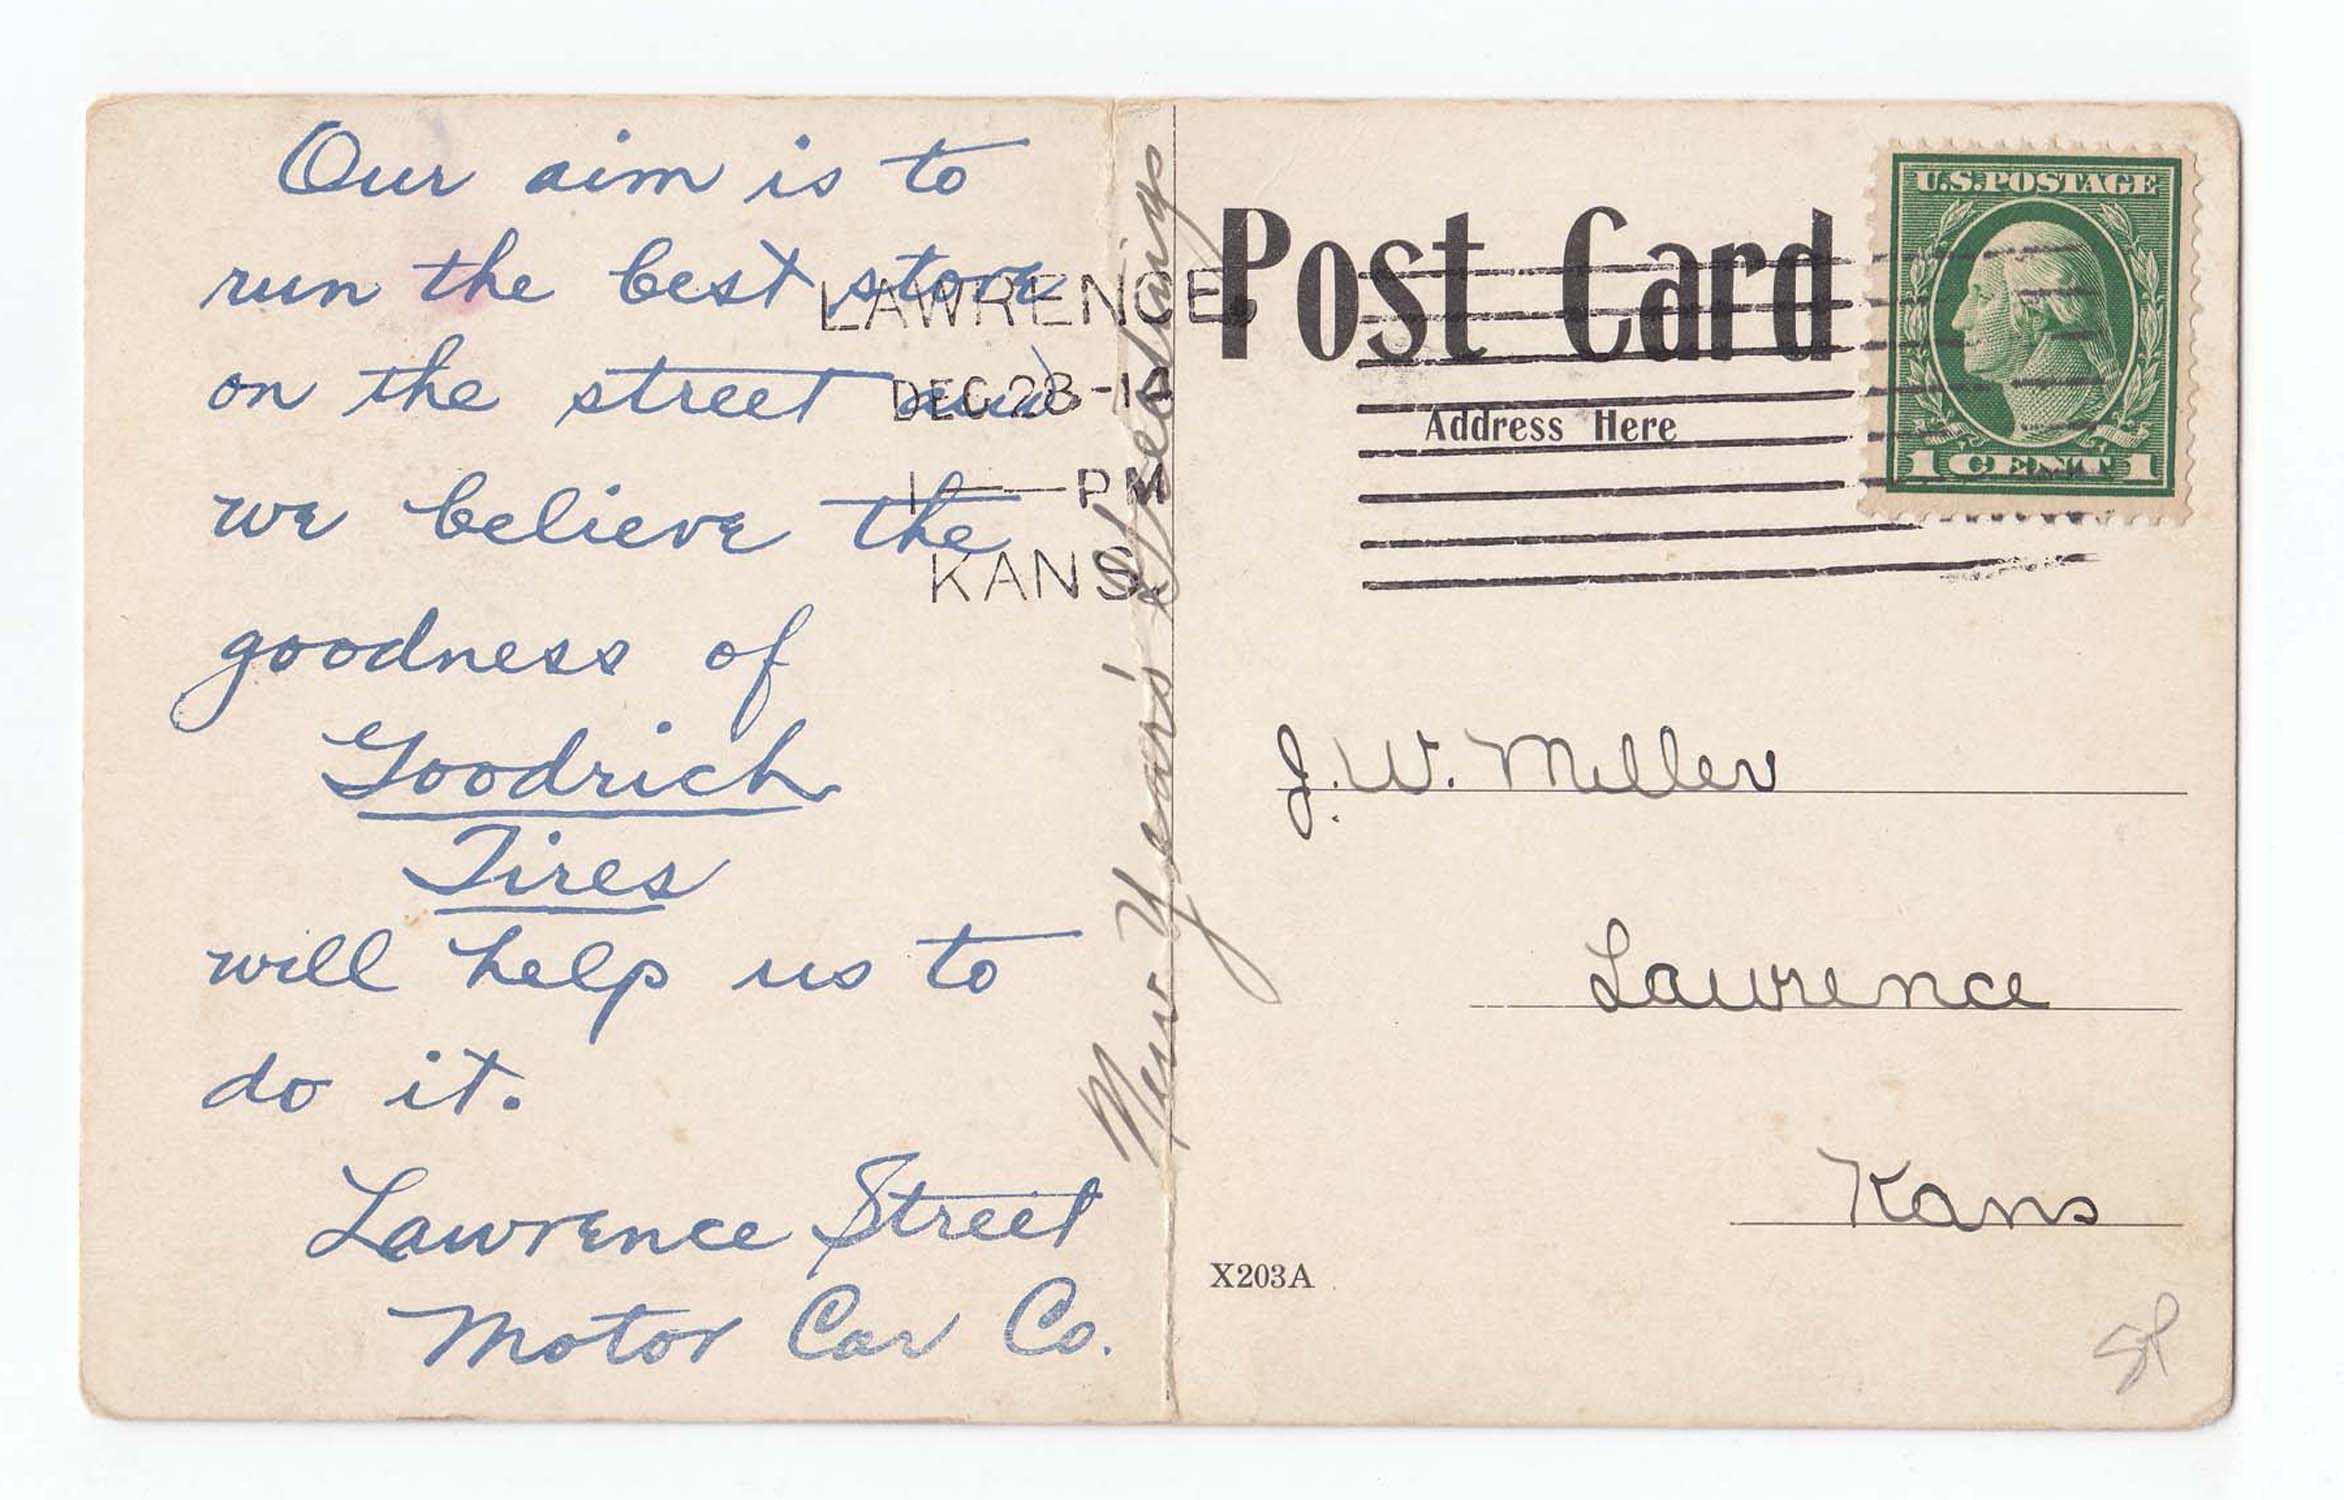 Our aim is to
run the best store
on the street and
we believe the
goodness of
Goodrich
Tires
will help us to
do it.
Lawrence Street
Motor Car Co.
New Year's Greetings
LAWRENCE,
DEC 28
1 — PM
KANS.
Post Card
Address Here
U.S. POSTAGE
1 CENT 1
J. W. Miller
Lawrence
Kans
X203A